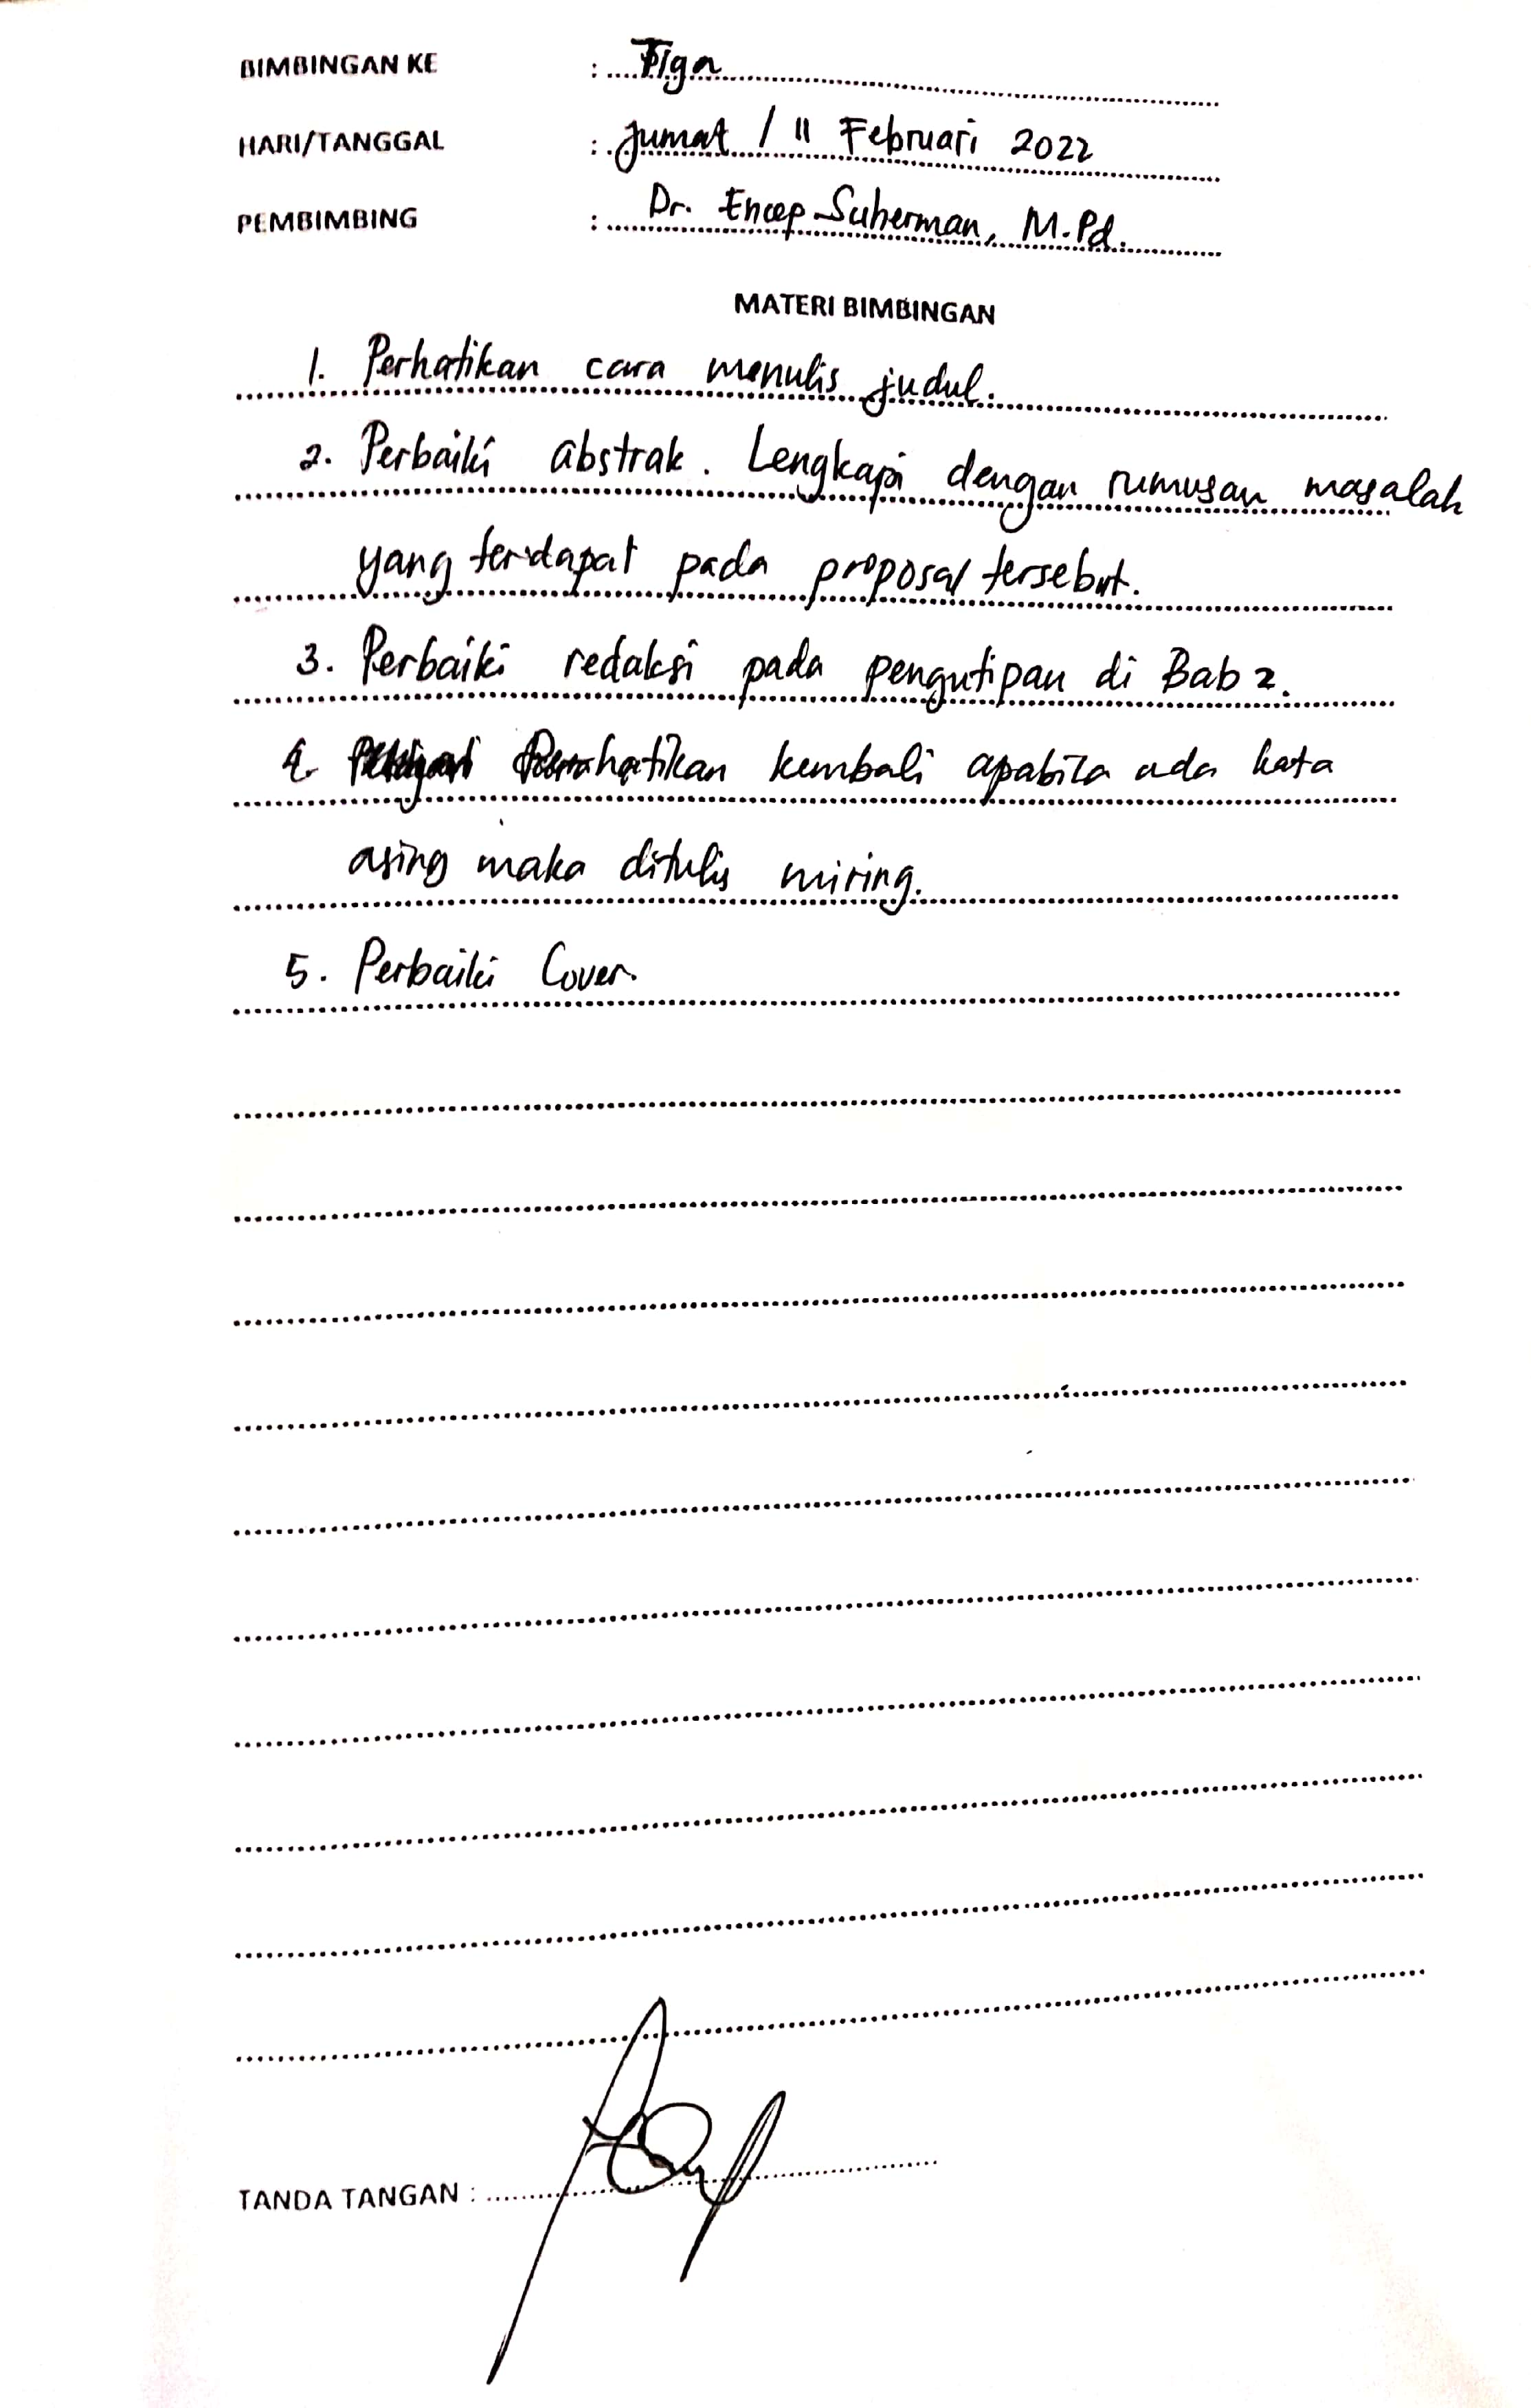 BIMBINGAN KE : Tiga
HARI/TANGGAL : Jumat / 11 Februari 2022
PEMBIMBING : Dr. Encep Suherman, M.Pd.
MATERI BIMBINGAN
1. Perhatikan cara menulis judul.
2. Perbaiki abstrak. Lengkapi dengan rumusan masalah
yang terdapat pada proposal tersebut.
3. Perbaiki redaksi pada pengutipan di Bab 2.
4. Perhatikan kembali apabila ada kata
asing maka ditulis miring.
5. Perbaiki Cover.
TANDA TANGAN :